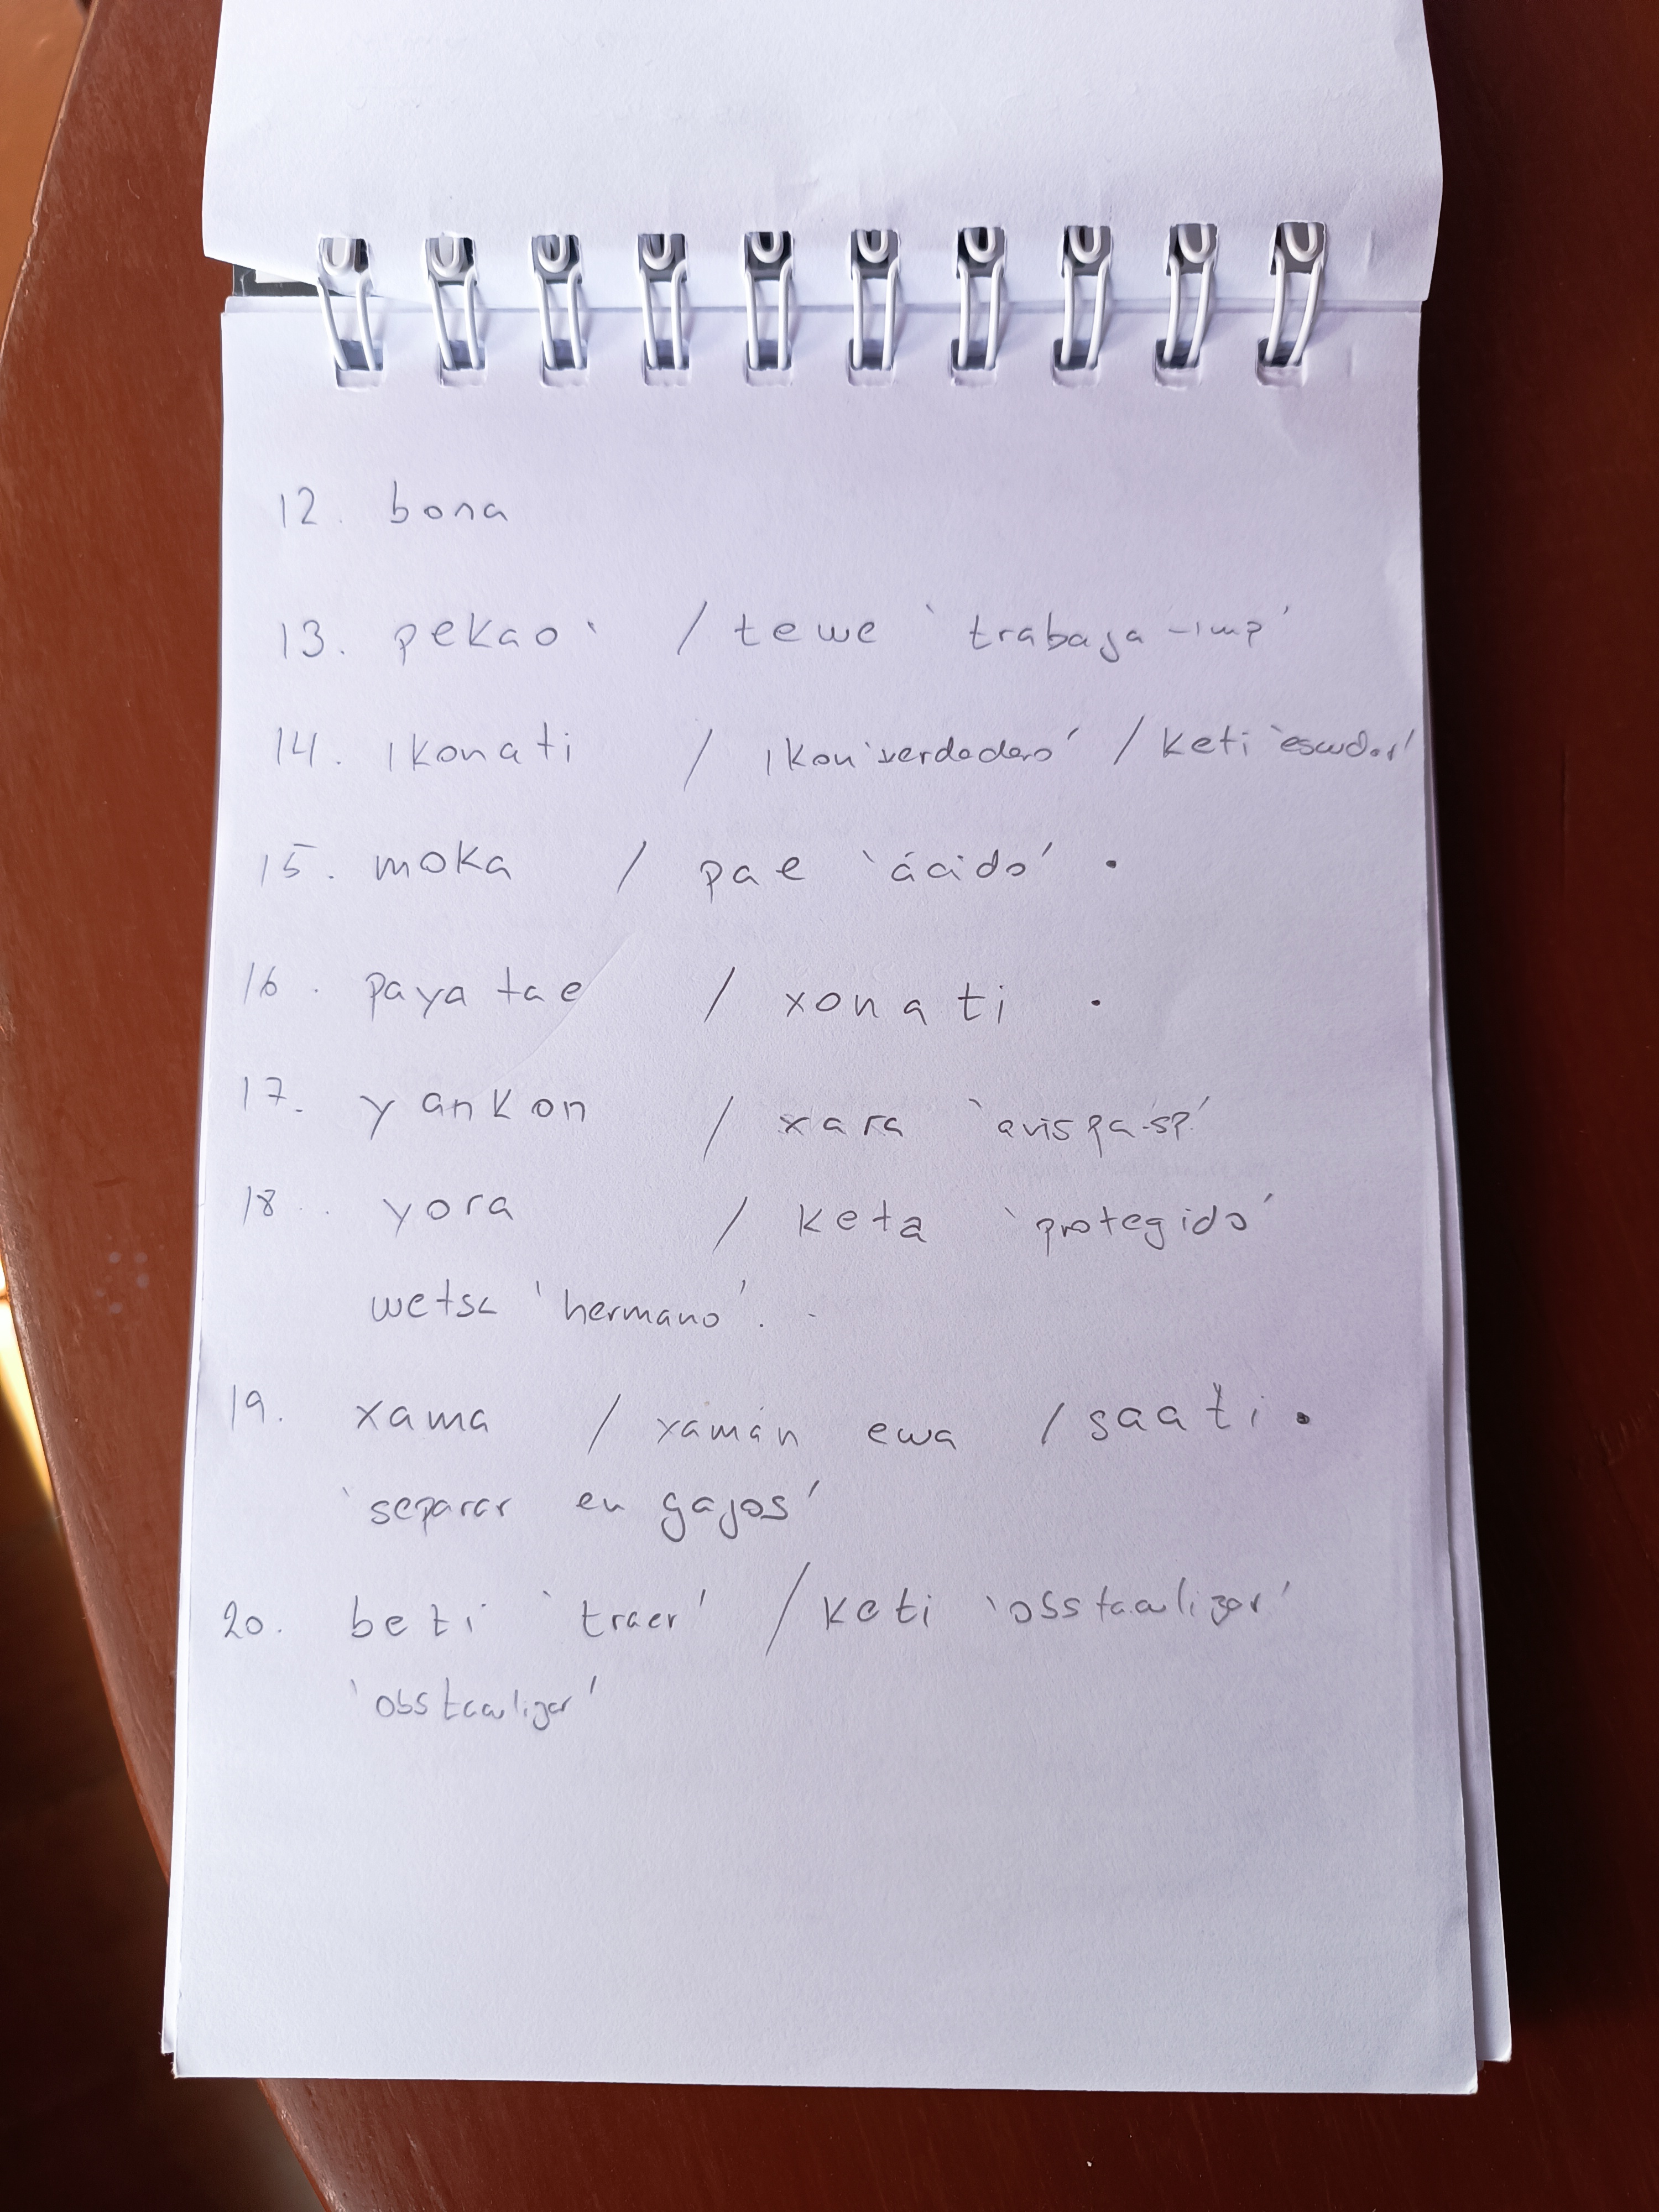 12. bona
13. pekao` / tewe `trabaja-imp´
14. ikonati / ikon `verdadero´ / keti `escudar´
15. moka / pae `ácido´ .
16. payatae / xonati .
17. yankon / xara `avispa-sp.´
18. yora / keta `protegido´
wetsa 'hermano'.
19. xama / xamán ewa / saati .
`separar en gajos´
20. beti `traer´ / keti `obstaculizar´
`obstaculizar´